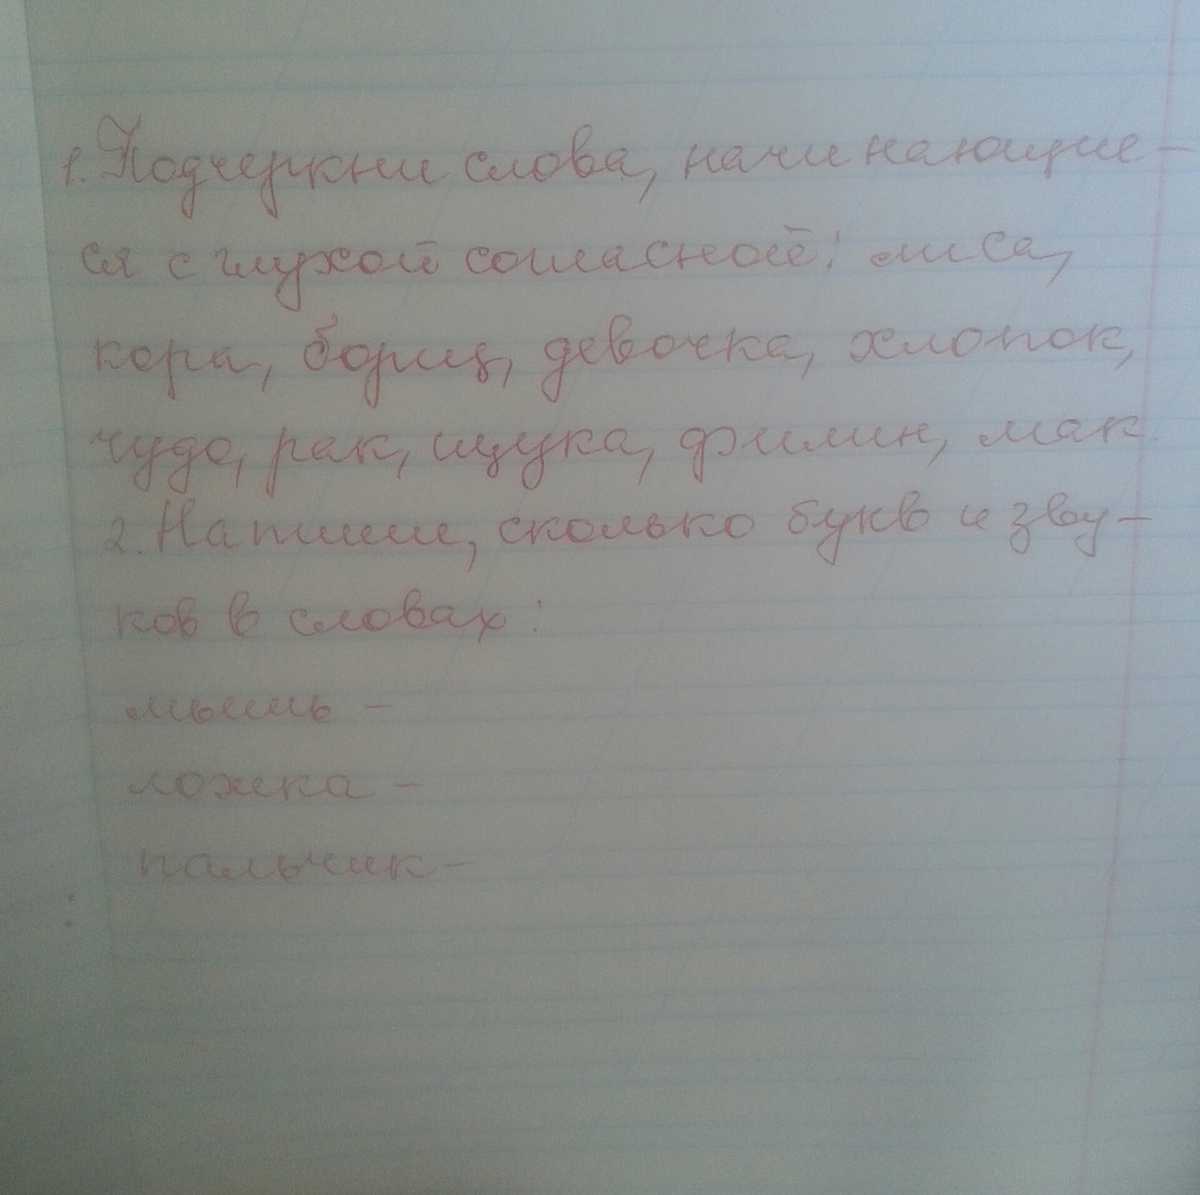 1. Подчеркни слова, начинающие-
ся с глухой согласной: лиса,
кора, борщ, девочка, хлопок,
чудо, рак, щука, филин, мак.
2. Напиши, сколько букв и зву-
ков в словах:
мышь -
ложка -
пальчик -